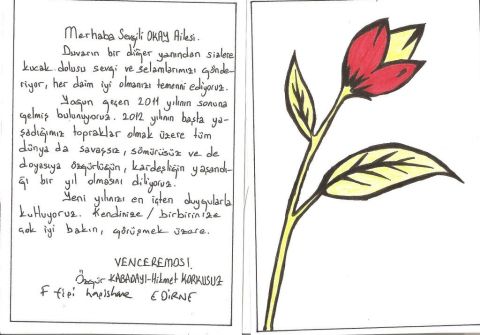 Merhaba Sevgili OKAY Ailesi.
Duvarın bir diğer yanından sizlere
kucak dolusu sevgi ve selamlarımızı gönde-
riyor, her daim iyi olmanızı temenni ediyoruz.
Yoğun geçen 2011 yılının sonuna
gelmiş bulunuyoruz. 2012 yılının başta ya-
şadığımız topraklar olmak üzere tüm
dünya da savaşsız, sömürüsüz ve de
doyasıya özgürlüğün, kardeşliğin yaşandı-
ğı bir yıl olmasını diliyoruz.
Yeni yılınızı en içten duygularla
kutluyoruz. Kendinize / birbirinize
çok iyi bakın, görüşmek üzere.
VENCEREMOS!
Özgür KABADAYI-Hikmet KORKUSUZ
F tipi hapishane EDİRNE